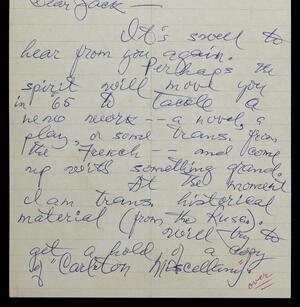 Dear Jack —
It's swell to
hear from you again.
Perhaps the
spirit will move you
in '65 to tackle a
new work -- a novel, a
play, or some trans. from
the French -- and come
up with something grand.
At the moment
I am trans. historical
material (from the Russ.)
Will try to
get a hold of a copy
of "Carleton Miscellany"
over